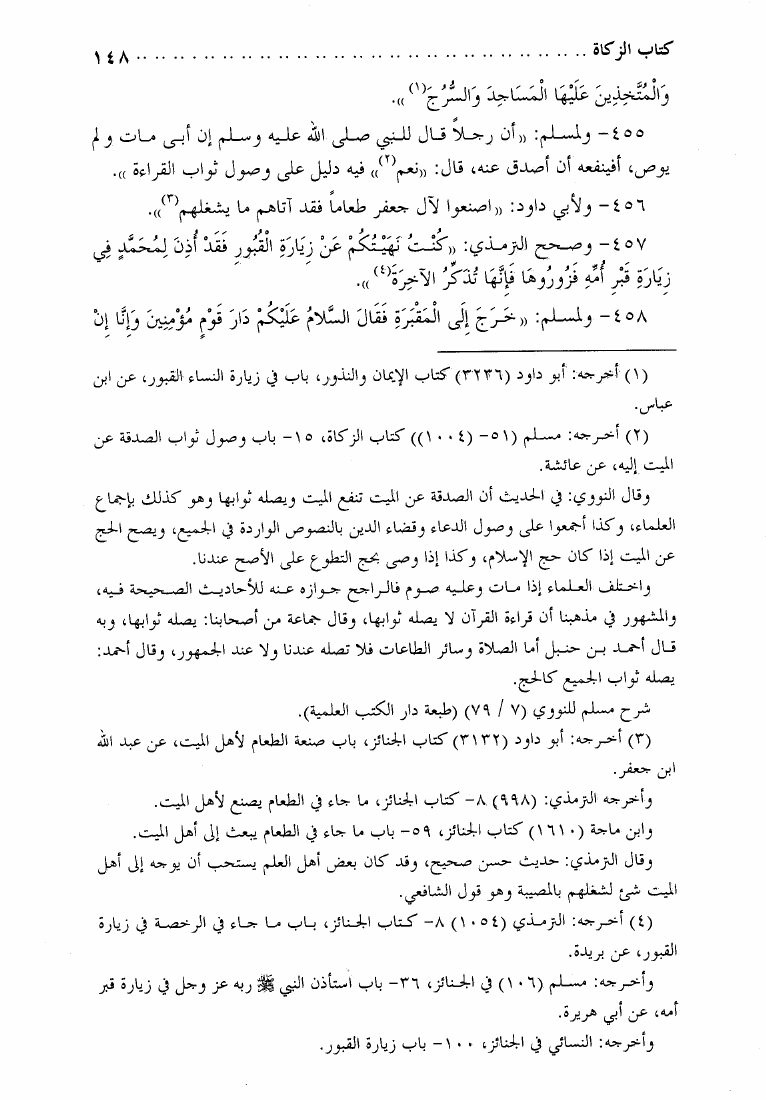 كتاب الزكاة .................................................. ١٤٨
وَالْمُتَّخِذِينَ عَلَيْهَا الْمَسَاجِدَ وَالسُّرُجَ(١)».
٤٥٥- ولمسلم: «أن رجلاً قال للنبي صلى الله عليه وسلم إن أبى مات و لم
يوص، أفينفعه أن أصدق عنه، قال: «نعم(٢)» فيه دليل على وصول ثواب القراءة ».
٤٥٦- ولأبي داود: «اصنعوا لآل جعفر طعاماً فقد آتاهم ما يشغلهم(٣)».
٤٥٧- وصحح الترمذي: «كُنْتُ نَهَيْتُكُمْ عَنْ زِيَارَةِ الْقُبُورِ فَقَدْ أُذِنَ لِمُحَمَّدٍ فِي
زِيَارَةِ قَبْرِ أُمِّهِ فَزُورُوهَا فَإِنَّهَا تُذَكِّرُ الآخِرَةَ(٤)».
٤٥٨- ولمسلم: «خَرَجَ إِلَى الْمَقْبَرَةِ فَقَالَ السَّلامُ عَلَيْكُمْ دَارَ قَوْمٍ مُؤْمِنِينَ وَإِنَّا إِنْ
(١) أخرجه: أبو داود (٣٢٣٦) كتاب الإيمان والنذور، باب في زيارة النساء القبور، عن ابن
عباس.
(٢) أخرجه: مسلم (٥١- (١٠٠٤)) كتاب الزكاة، ١٥- باب وصول ثواب الصدقة عن
الميت إليه، عن عائشة.
وقال النووي: في الحديث أن الصدقة عن الميت تنفع الميت ويصله ثوابها وهو كذلك بإجماع
العلماء، وكذا أجمعوا على وصول الدعاء وقضاء الدين بالنصوص الواردة في الجميع، ويصح الحج
عن الميت إذا كان حج الإسلام، وكذا إذا وصى بحج التطوع على الأصح عندنا.
واختلف العلماء إذا مات وعليه صوم فالراجح جوازه عنه للأحاديث الصحيحة فيه،
والمشهور في مذهبنا أن قراءة القرآن لا يصله ثوابها، وقال جماعة من أصحابنا: يصله ثوابها، وبه
قال أحمد بن حنبل أما الصلاة وسائر الطاعات فلا تصله عندنا ولا عند الجمهور، وقال أحمد:
يصله ثواب الجميع كالحج.
شرح مسلم للنووي (٧ / ٧٩) (طبعة دار الكتب العلمية).
(٣) أخرجه: أبو داود (٣١٣٢) كتاب الجنائز، باب صنعة الطعام لأهل الميت، عن عبد الله
ابن جعفر.
وأخرجه الترمذي: (٩٩٨) ٨- كتاب الجنائز، ما جاء في الطعام يصنع لأهل الميت.
وابن ماجة (١٦١٠) كتاب الجنائز، ٥٩- باب ما جاء في الطعام يبعث إلى أهل الميت.
وقال الترمذي: حديث حسن صحيح، وقد كان بعض أهل العلم يستحب أن يوجه إلى أهل
الميت شئ لشغلهم بالمصيبة وهو قول الشافعي.
(٤) أخرجه: الترمذي (١٠٥٤) ٨- كتاب الجنائز، باب ما جاء في الرخصة في زيارة
القبور، عن بريدة.
وأخرجه: مسلم (١٠٦) في الجنائز، ٣٦- باب استأذن النبي ﷺ ربه عز وجل في زيارة قبر
أمه، عن أبي هريرة.
وأخرجه: النسائي في الجنائز، ١٠٠- باب زيارة القبور.